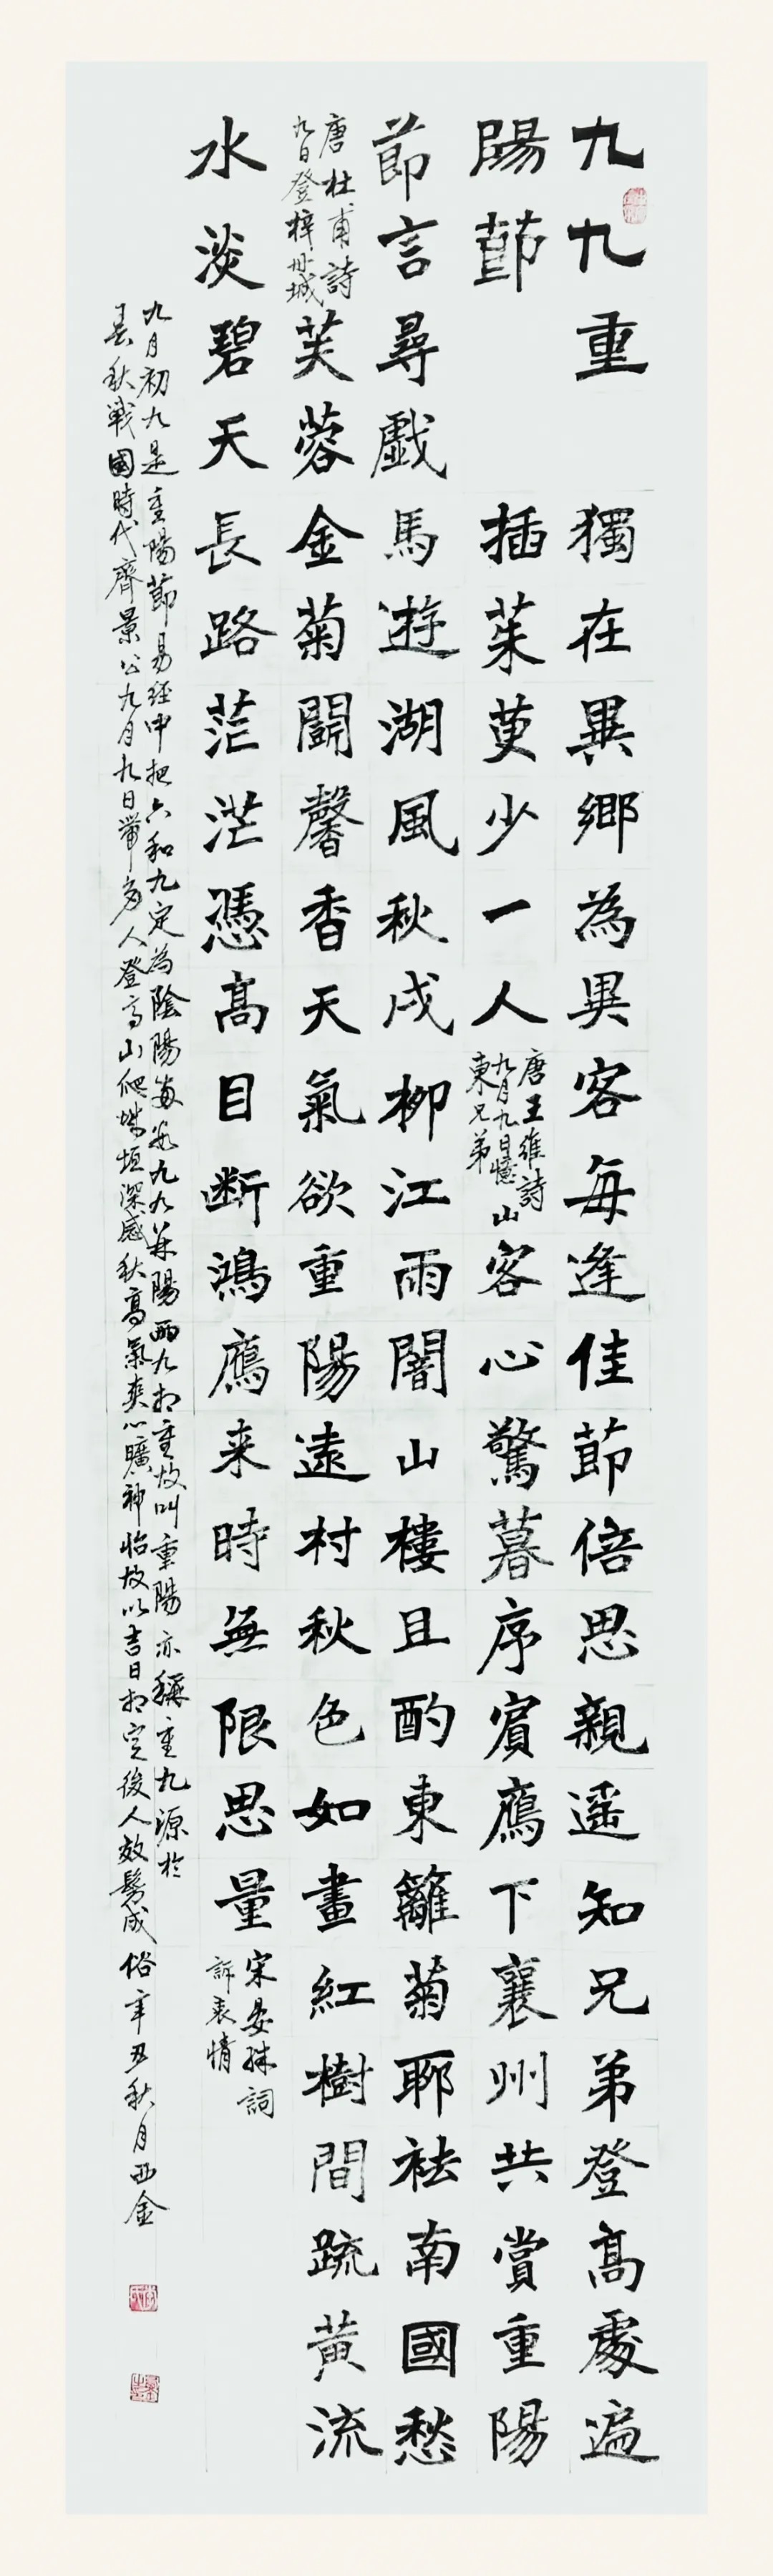 九九重
陽節
獨在異鄉為異客每逢佳節倍思親遥知兄弟登高處遍
插茱萸少一人
唐王維詩
九月九日憶山
東兄弟
客心驚暮序賓鴈下襄州共賞重陽
節言尋戲馬遊湖風秋戍柳江雨闇山樓且酌東籬菊聊祛南國愁
唐杜甫詩
九日登梓州城
芙蓉金菊鬭馨香天氣欲重陽遠村秋色如畫紅樹間疏黄流
水淡碧天長路茫茫憑高目断鴻鴈来時無限思量
宋晏殊詞
訴衷情
九月初九是重陽節易經中把六和九定為陰陽數九九兼陽兩九相重故叫重陽亦稱重九源於
春秋戰國時代齊景公九月九日帶多人登高山爬城垣深感秋高氣爽心曠神怡故以吉日相定後人效髣成俗辛丑秋月西金